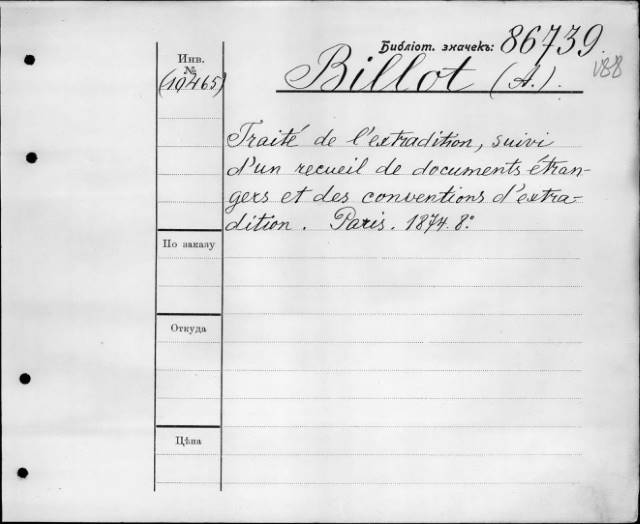 Библіот. значекъ: 86739.
Инв.
№
(10465)
Billot (A.).
Traité de l'extradition, suivi
d'un recueil de documents étran-
gers et des conventions d'extra-
dition. Paris. 1874. 8.º
По заказу
Откуда
Цѣна